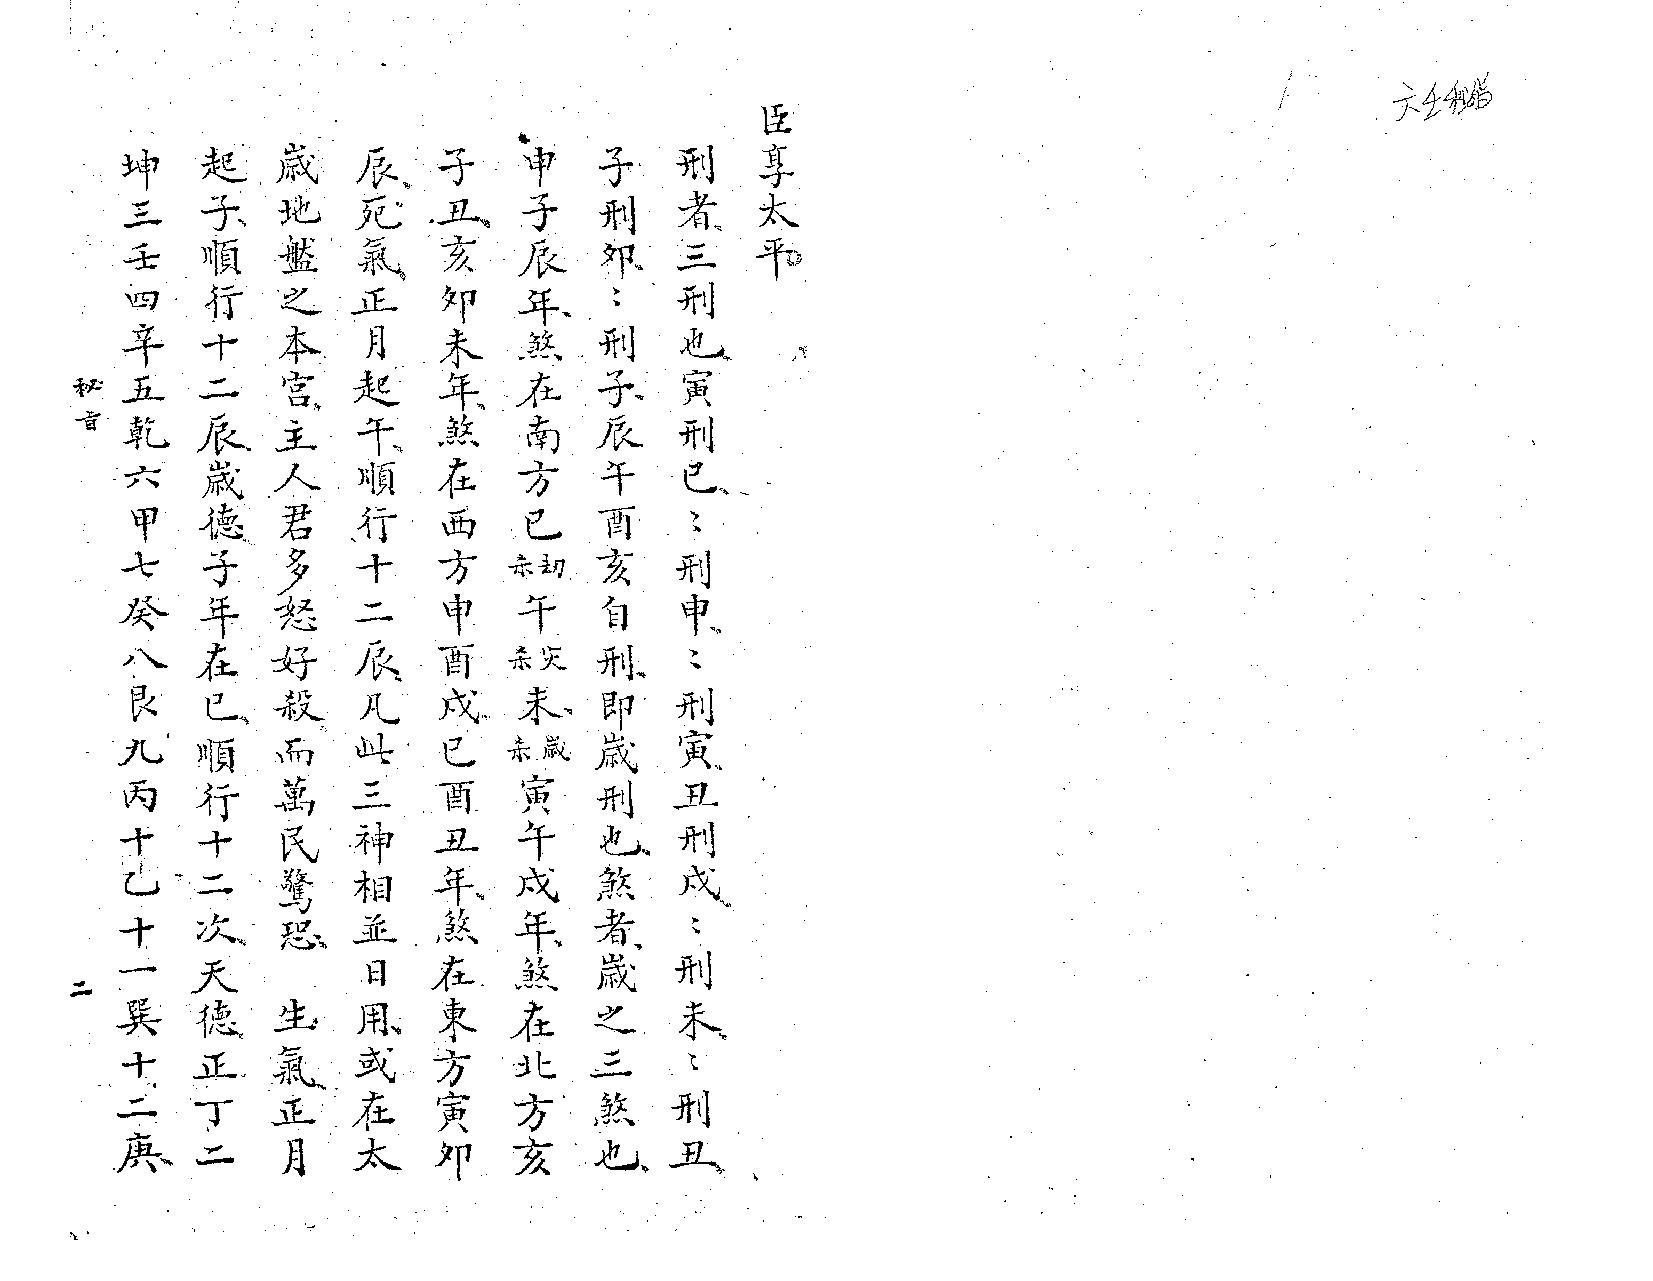 六壬秘旨
臣享太平
刑者、三刑也、寅刑巳、〻刑申、〻刑寅、丑刑戌、〻刑未、〻刑丑、
子刑卯、〻刑子、辰午酉亥自刑、即歲刑也、煞者、歲之三煞也、
申子辰年、煞在南方巳劫杀午灾杀未、歲杀寅午戌年、煞在北方亥
子丑、亥卯未年、煞在西方申酉戌、巳酉丑年、煞在東方寅卯
辰、死氣、正月起午、順行十二辰、凡此三神相並日用、或在太
歲地盤之本宮、主人君多怒好殺、而萬民驚恐、 生氣、正月
起子、順行十二辰、歲德、子年在巳、順行十二次、天德、正丁二
坤三壬四辛五乾六甲七癸八艮九丙十乙十一巽十二庚、
秘旨
二